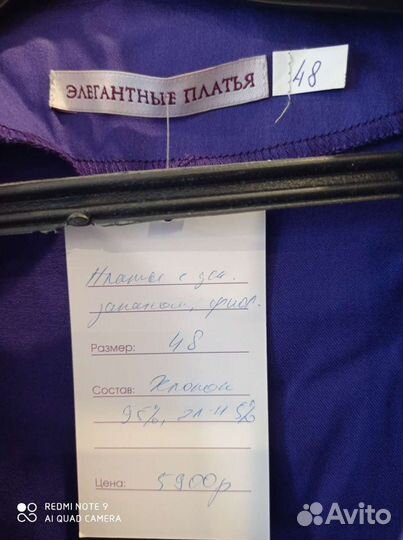 ЭЛЕГАНТНЫЕ ПЛАТЬЯ
48
Платье с
запахом, фиол.
Размер: 48
Состав: Хлопок
95%, эл-н 5%
Цена: 5900р
REDMI NOTE 9
AI QUAD CAMERA
Avito